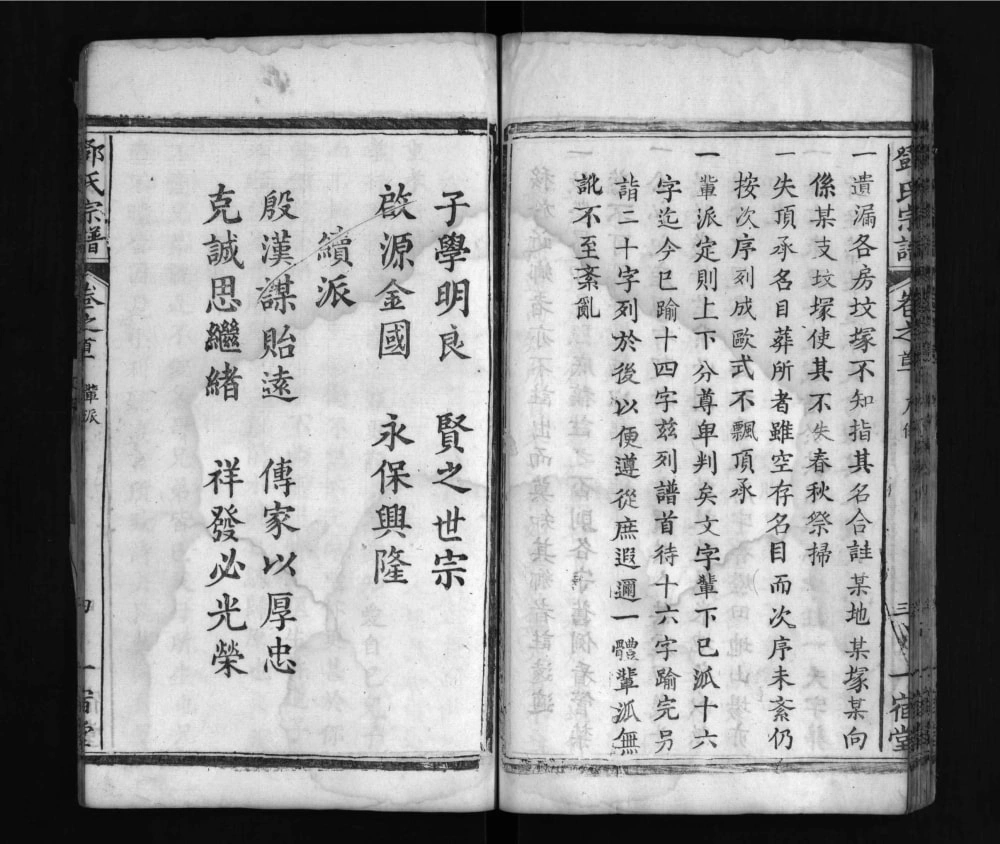 鄧氏宗譜 卷之首 凡例 三 一宿堂
一遺漏各房坟塚不知指其名合註某地某塚某向
係某支坟塚使其不失春秋祭掃
一失頂承名目葬所者雖空存名目而次序未紊仍
按次序列成歐式不飄頂承
一軰派定則上下分尊卑判矣文字軰下已派十六
字迄今已踰十四字兹列譜首待十六字踰完另
諧二十字列於後以便遵從庶遐邇一體軰派無
訛不至紊亂
子學明良 賢之世宗
啟源金國 永保興隆
續派
殷漢謀貽遠 傳家以厚忠
克誠思繼緒 祥發必光榮
鄧氏宗譜 卷之首 軰派 四 一宿堂